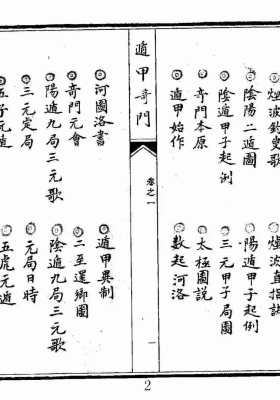 煙波釣叟歌 煙波直指訣
陰陽二遁圖 陽遁甲子起例
陰遁甲子起例 三元甲子局圖
奇門本原 太極圖説
遁甲始作 數起河洛
遁甲奇門 卷之一 一
河圖洛書 遁甲異制
奇門元會 二至還鄉圖
陽遁九局三元歌 陰遁九局三元歌
三元定局 元局日時
五子元遁 五虎元遁
2